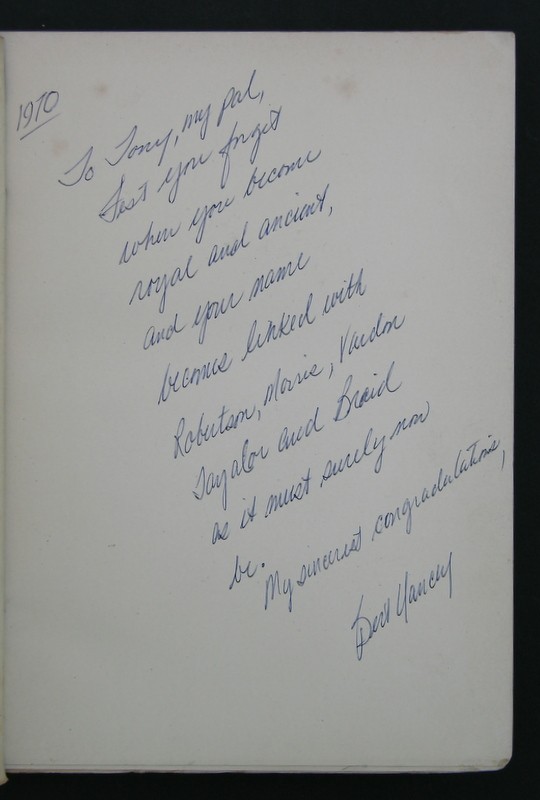 1970
To Tony, my pal,
Lest you forget
when you become
royal and ancient,
and your name
becomes linked with
Robertson, Morris, Vardon
Tayalor and Braid
as it must surely now
be.
My sincerest congradulations,
Bert Yancey